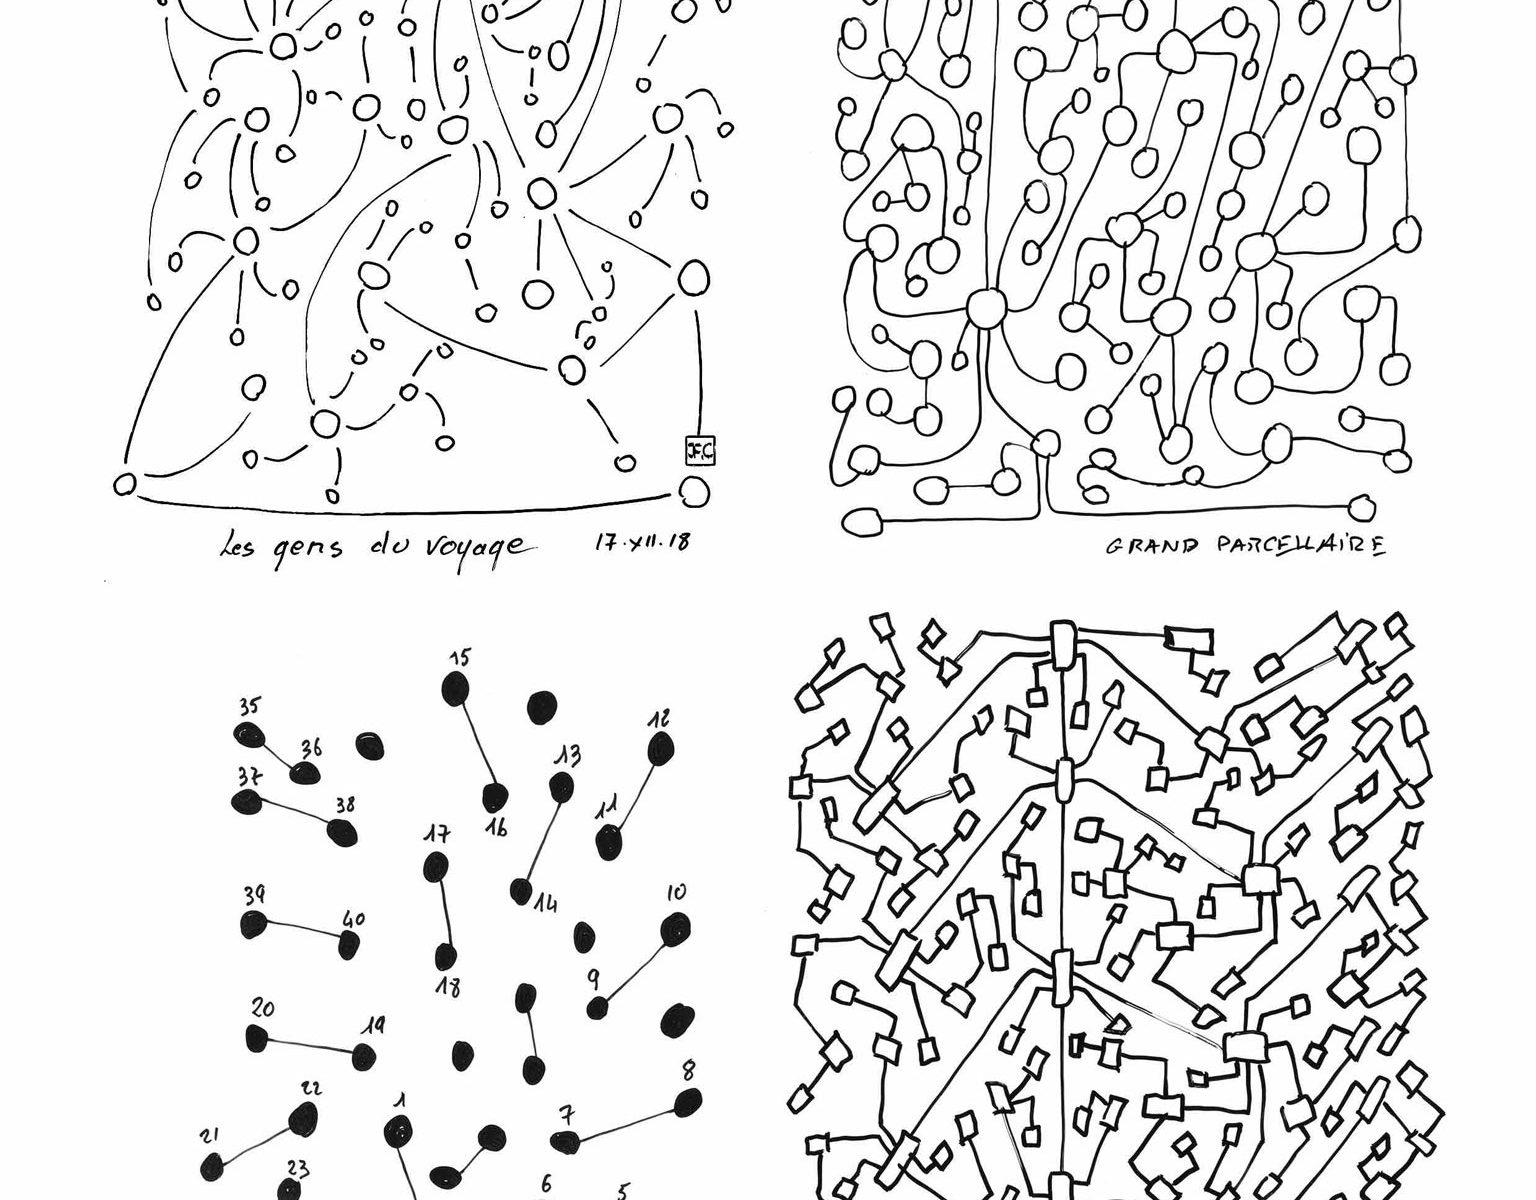 JFC
Les gens du voyage 17.XII.18
GRAND PARCELLAIRE
15
35
12
36
13
37
38
11
16
17
39
14
10
40
18
9
20
19
22
8
1
7
21
23
6
5